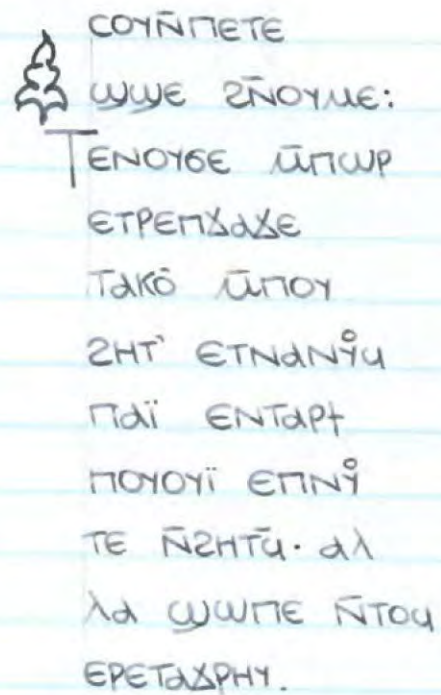 ⲥⲟⲩⲛ̄ⲡⲉⲧⲉ
ϣϣⲉ ϩⲛ̄ⲟⲩⲙⲉ:
Ⲧⲉⲛⲟⲩϭⲉ ⲙ̄ⲡⲱⲣ
ⲉⲧⲣⲉⲡϫⲁϫⲉ
ⲧⲁⲕⲟ̄ ⲙ̄ⲡⲟⲩ
ϩⲏⲧ` ⲉⲧⲛⲁⲛⲩ̊ϥ
ⲡⲁⲓ̈ ⲉⲛⲧⲁⲣϯ
ⲡⲟⲩⲟⲩⲓ̈ ⲉⲡⲛⲩ̊
ⲧⲉ ⲛ̄ϩⲏⲧϥ̄· ⲁⲗ
ⲗⲁ ϣⲱⲡⲉ ⲛ̄ⲧⲟϥ
ⲉⲣⲉⲧⲁϫⲣⲏⲩ.